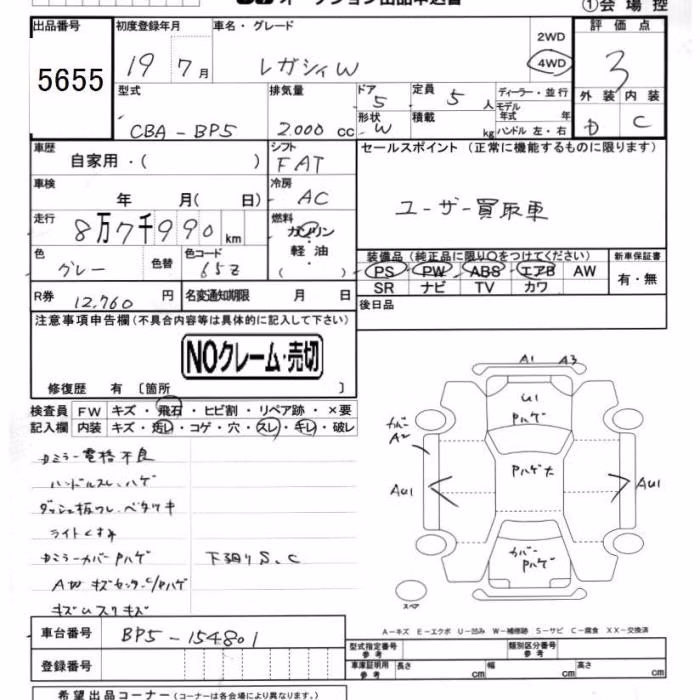 オークション出品申込書 ①会場控
出品番号 初度登録年月 車名・グレード 2WD 評価点
5655 19 7月 レガシィW 4WD 3
型式 排気量 ドア 5 定員 5人 ディーラー・並行 外装 内装
モデル年式 年
CBA-BP5 2.000cc 形状 W 積載 kg ハンドル 左・右 D C
車歴 シフト セールスポイント(正常に機能するものに限ります)
自家用・( ) FAT
車検 冷房
年 月(日) AC ユーザー買取車
走行 燃料
8万7千990km ガソリン
軽油
( )
色 色替 色コード 装備品(純正品に限り○をつけてください) 新車保証書
グレー 65Z PS PW ABS エアB AW 有・無
SR ナビ TV カワ
R券 12,760円 名変通知期限 月 日 後日品
注意事項申告欄(不具合内容等は具体的に記入して下さい)
NOクレーム・売切
修復歴 有〔箇所 〕
検査員 FW キズ・飛石・ヒビ割・リペア跡・×要
記入欄 内装 キズ・汚レ・コゲ・穴・スレ・キレ・破レ
ミラー電格不良
ハンドルスレ、ハゲ
ダッシュ板ワレ、ベタツキ
ライトくすみ
ミラーカバーPハゲ 下廻りS、C
AW キズセンターC/Pハゲ
A1 A3
U1
Pハゲ
カバー
A2
Pハゲ大
AU1 AU1
カバー
Pハゲ
スペア
A―キズ E―エクボ U―凹み W―補修跡 S―サビ C―腐食 XX―交換済
車台番号 BP5-154801
型式指定番号 参考 類別区分番号 参考
登録番号 車庫証明用 参考 長さ cm 幅 cm 高さ cm
希望出品コーナー(コーナーは各会場により異なります。)